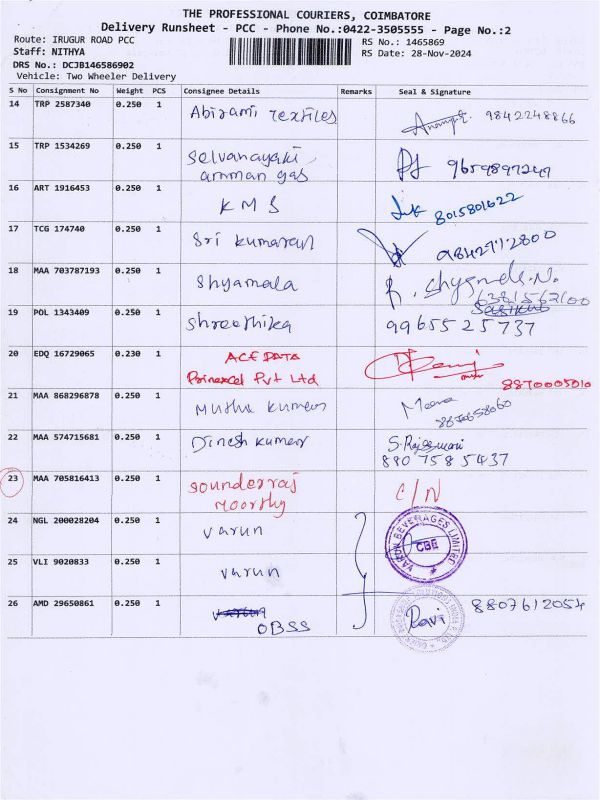 THE PROFESSIONAL COURIERS, COIMBATORE
Delivery Runsheet - PCC - Phone No.:0422-3505555 - Page No.:2
Route: IRUGUR ROAD PCC
Staff: NITHYA
DRS No.: DCJB146586902
Vehicle: Two Wheeler Delivery
RS No.: 1465869
RS Date: 28-Nov-2024
S No Consignment No Weight PCS Consignee Details Remarks Seal & Signature
14 TRP 2587340 0.250 1 Abirami textiles 9842248866
15 TRP 1534269 0.250 1 Selvanayaki 9659897247
amman gas
16 ART 1916453 0.250 1 KMS 8015801622
17 TCG 174740 0.250 1 Sri kumaran 9842712800
18 MAA 703787193 0.250 1 Shyamala 6381562100
19 POL 1343409 0.250 1 Shreethika 9965525737
20 EDQ 16729065 0.230 1 ACE DATA
Prinexcel Pvt Ltd 8870005010
21 MAA 868296878 0.250 1 Muthu kumar Meena
22 MAA 574715681 0.250 1 Dinesh kumar S.Rajeswari
8807585437
23 MAA 705816413 0.250 1 Sounderraj C/N
Moorthy
24 NGL 200028204 0.250 1 Varun VARUN BEVERAGES LIMITED
CBE
25 VLI 9020833 0.250 1 Varun
26 AMD 29650861 0.250 1 OBSS Ravi 8807612054